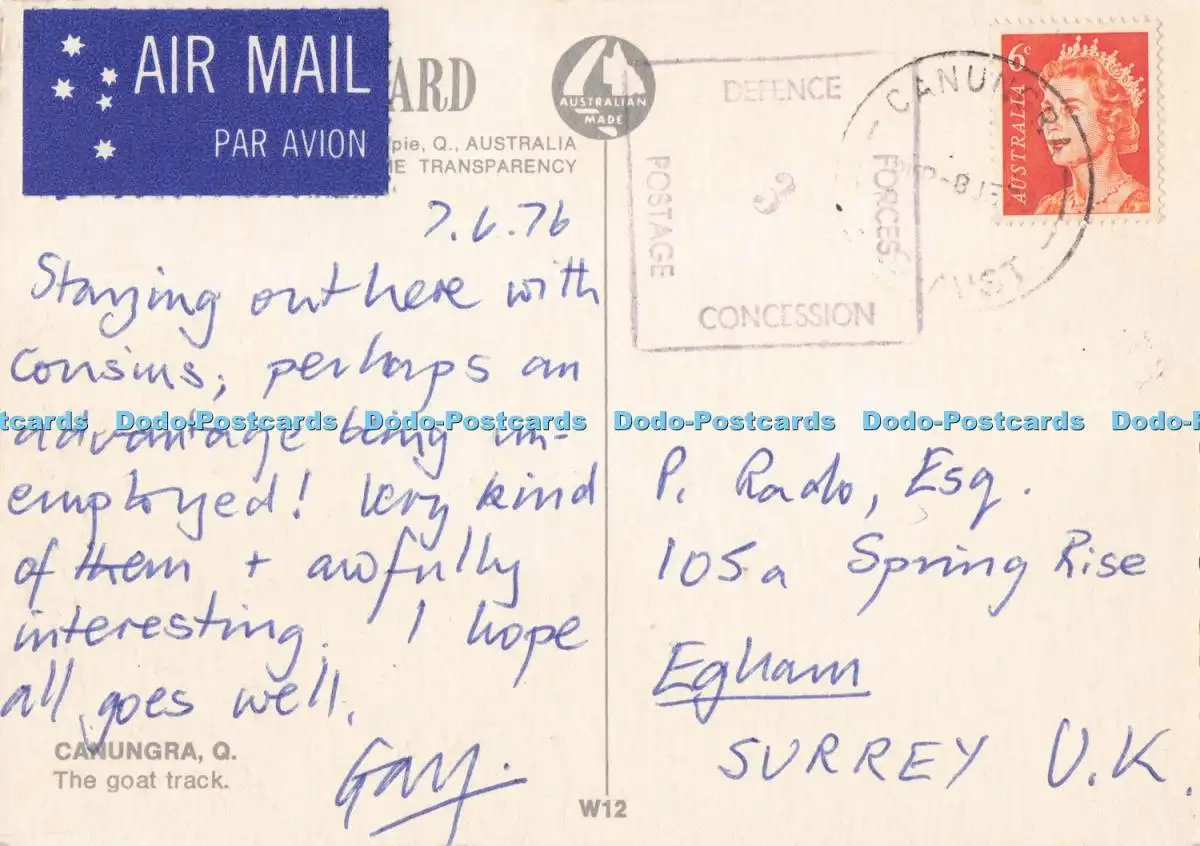 AIR MAIL
PAR AVION
ARD
pie, Q., AUSTRALIA
ME TRANSPARENCY
AUSTRALIAN
MADE
DEFENCE
FORCES
POSTAGE
CONCESSION
CANUNGRA
6c
AUSTRALIA
7.6.76
Staying out here with
cousins; perhaps an
advantage being un-
employed! Very kind
of them + awfully
interesting. I hope
all goes well.
Gary.
CANUNGRA, Q.
The goat track.
W12
P. Rado, Esq.
105a Spring Rise
Egham
SURREY U.K.
Dodo-Postcards Dodo-Postcards Dodo-Postcards Dodo-Postcards Dodo-